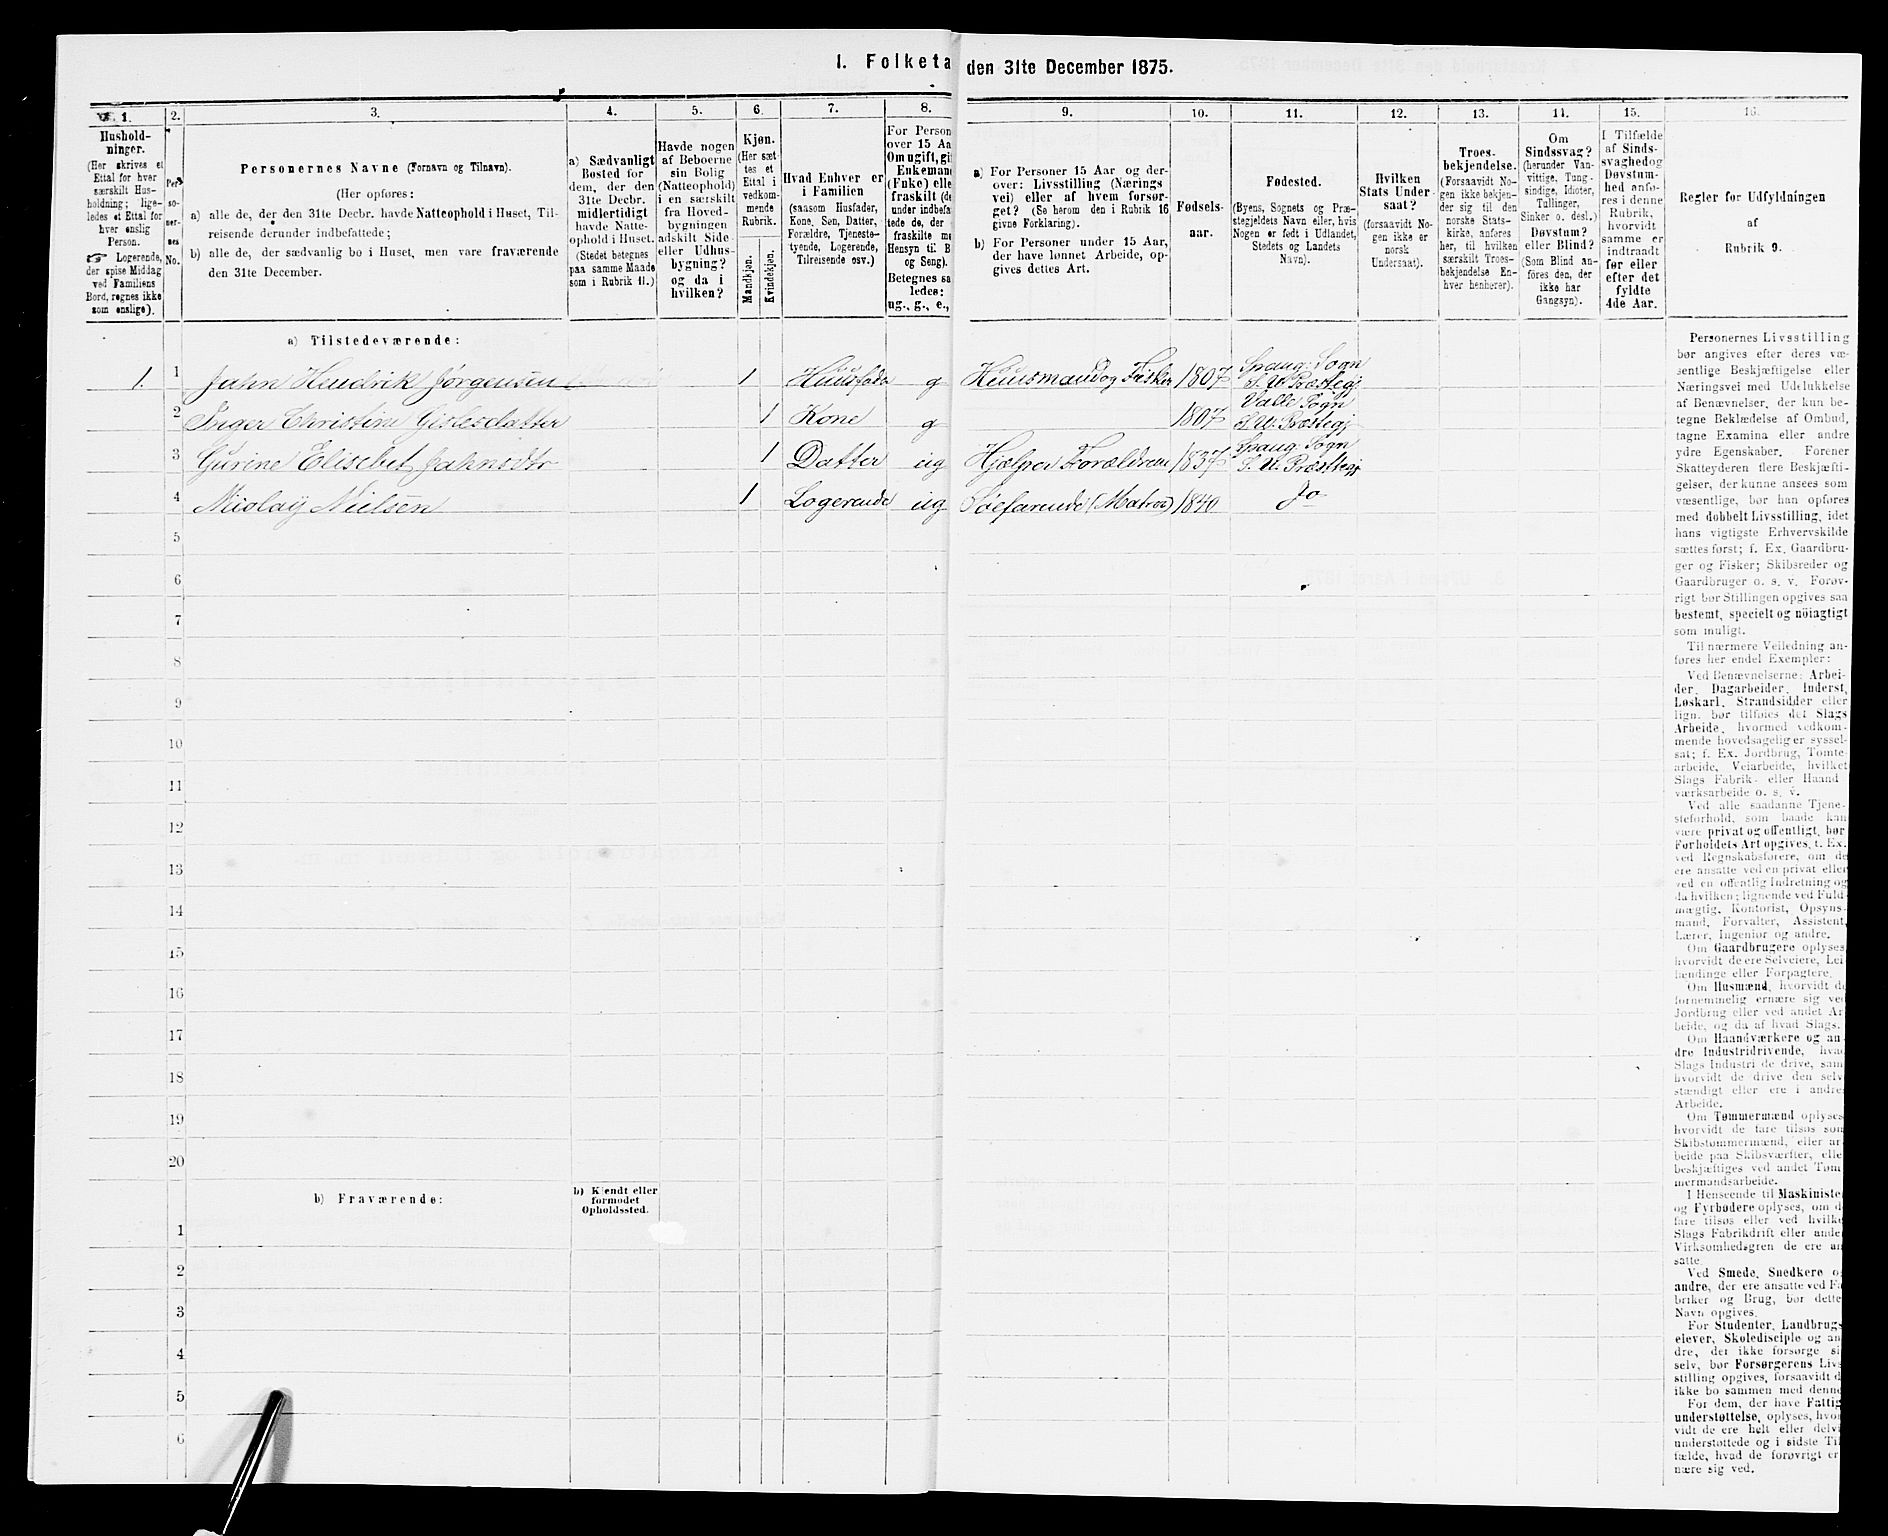 1. Folketa den 31te December 1875.
1. 2. 3. 4. 5. 6. 7. 8. 9. 10. 11. 12. 13. 14. 15. 16.
Hushold-
ninger.
(Her skrives et
Ettal for hver
særskilt Hus-
holdning; lige-
ledes et Ettal for
hver enslig
Person.
☞ Logerende,
der spise Middag
ved Familiens
Bord, regnes ikke
som enslige).
Per-
so-
ner-
nes
No.
Personernes Navne (Fornavn og Tilnavn).
(Her opføres:
a) alle de, der den 31te Decbr. havde Natteophold i Huset, Til-
reisende derunder indbefattede;
b) alle de, der sædvanlig bo i Huset, men vare fraværende
den 31te December.
a) Sædvanligt
Bosted for
dem, der den
31te Decbr.
midlertidigt
havde Natte-
ophold i Huset.
(Stedet betegnes
paa samme Maade
som i Rubrik 11.)
Havde nogen
af Beboerne
sin Bolig
(Natteophold)
i en særskilt
fra Hoved-
bygningen
adskilt Side
eller Udhus-
bygning?
og da i
hvilken?
Kjøn.
(Her sæt-
tes et
Ettal i
vedkom-
mende
Rubrik.
Mandkjøn.
Kvindekjøn.
Hvad Enhver er
i Familien
(saasom Husfader,
Kone, Søn, Datter,
Forældre, Tjeneste-
tyende, Logerende,
Tilreisende osv.)
For Person
over 15 Aa
Om ugift, gi
Enkeman
(Fnke) elle
fraskilt (de
under indbefa
tede de, der
fraskilte m
Hensyn til B
og Seng).
Betegnes sa
ledes:
ug., g., e.,
a) For Personer 15 Aar og der-
over: Livsstilling (Nærings
vei) eller af hvem forsør-
get? (Se herom den i Rubrik 16
givne Forklaring).
b) For Personer under 15 Aar,
der have lønnet Arbeide, op-
gives dettes Art.
Fødsels-
aar.
Fødested.
(Byens, Sognets og Præ-
stegjeldets Navn eller, hvis
Nogen er født i Udlandet,
Stedets og Landets
Navn).
Hvilken
Stats Under-
saat?
(forsaavidt No-
gen ikke er
norsk
Undersaat).
Troes-
bekjendelse.
(Forsaavidt No-
gen ikke bekjen-
der sig til den
norske Stats-
kirke, anføres
her, til hvilken
særskilt Troes-
bekjendelse En-
hver henhører).
Om
Sindssvag?
(herunder Van-
vittige, Tung-
sindige, Idioter,
Tullinger,
Sinker o. desl.)
Døvstum?
eller Blind?
(Som Blind an-
føres den, der
ikke har
Gangsyn).
I Tilfælde
af Sinds-
svaghed og
Døvstum-
hed anfø-
res i denne
Rubrik,
hvorvidt
samme er
indtraadt
før eller
efter det
fyldte
4de Aar.
Regler for Udfyldningen
af
Rubrik 9.
a) Tilstedeværende:
1. 1 Jahn Hendrik Jørgensen 1 Huusfader g Huusmand og Fisker 1807 Spang: Sogn
S. U. Præstegj
2 Inger Christine Gislesdatter 1 Kone g 1807 Valle Sogn
S. U. Præstegj
3 Gurine Elisebet Jahnsdtr 1 Datter ug Hjælper Forældrene 1837 Spang: Sogn
S. U. Præstegj
4 Nicolay Nielsen 1 Logerende ug Søefarende (Matros) 1840 Do
5
6
7
8
9
10
11
12
13
14
15
16
17
18
19
20
b) Fraværende:
b) Kjendt eller
formodet
Opholdssted.
1
2
3
4
5
6
Personernes Livsstilling
bør angives efter deres væ-
sentlige Beskjæftigelse eller
Næringsvei med Udelukkelse
af Benævnelser, der kun be-
tegne Beklædelse af Ombud,
tagne Examina eller andre
ydre Egenskaber. Forener
Skatteyderen flere Beskjæfti-
gelser, der kunne ansees som
væsentlige, bør han opføres
med dobbelt Livsstilling, idet
hans vigtigste Erhvervskilde
sættes først; f. Ex. Gaardbru-
ger og Fisker; Skibsreder og
Gaardbruger o. s. v. Forøv-
rigt bør Stillingen opgives saa
bestemt, specielt og nöiagtigt
som muligt.
Til nærmere Veiledning an-
føres her endel Exempler:
Ved Benævnelserne: Arbei-
der, Dagarbeider, Inderst,
Løskarl, Strandsidder eller
lign. bør tilføies det Slags
Arbeide, hvormed vedkom-
mende hovedsagelig er syssel-
sat; f. Ex. Jordbrug, Tomte-
arbeide, Veiarbeide, hvilket
Slags Fabrik- eller Haand-
værksarbeide o. s. v.
Ved alle saadanne Tjene-
steforhold, som baade kan
være privat og offentligt, bør
Forholdets Art opgives, f. Ex.
ved Regnskabsførere, om de
ere ansatte ved en privat eller
ved en offentlig Indretning og
da hvilken; lignende ved Fuld-
mægtig, Kontorist, Opsyns-
mand, Forvalter, Assistent,
Lærer, Ingeniør og andre.
Om Gaardbrugere oplyses,
hvorvidt de ere Selveiere, Lei-
lændinge eller Forpagtere.
Om Husmænd, hvorvidt de
fornemmelig ernære sig ved
Jordbrug eller ved andet Ar-
beide, og da af hvad Slags.
Om Haandværkere og an-
dre Industridrivende, hvad
Slags Industri de drive, samt
hvorvidt de drive den selv-
stændigt eller ere i andres
Arbeide.
Om Tømmermænd oplyses,
hvorvidt de fare tilsøs som
Skibstømmermænd, eller ar-
beide paa Skibsværfter, eller
beskjæftiges ved andet Tøm-
mermandsarbeide.
I Henseende til Maskinister
og Fyrbødere oplyses, om de
fare tilsøs eller ved hvilke
Slags Fabrikdrift eller anden
Virksomhedsgren de ere an-
satte.
Ved Smede, Snedkere o
andre, der ere ansatte ved Fa
briker og Brug, bør dette
Navn opgives.
For Studenter, Landbrugs
elever, Skoledisciple og an
dre, der ikke forsørge si
selv, bør Forsørgerens Livs
stilling opgives, forsaavidt d
ikke bo sammen med denne
For dem, der have Fattig
understøttelse, oplyses, hvor
vidt de ere helt eller delvi
understøttede og i sidste Til
fælde, hvad de forøvrigt er
nære sig ved.